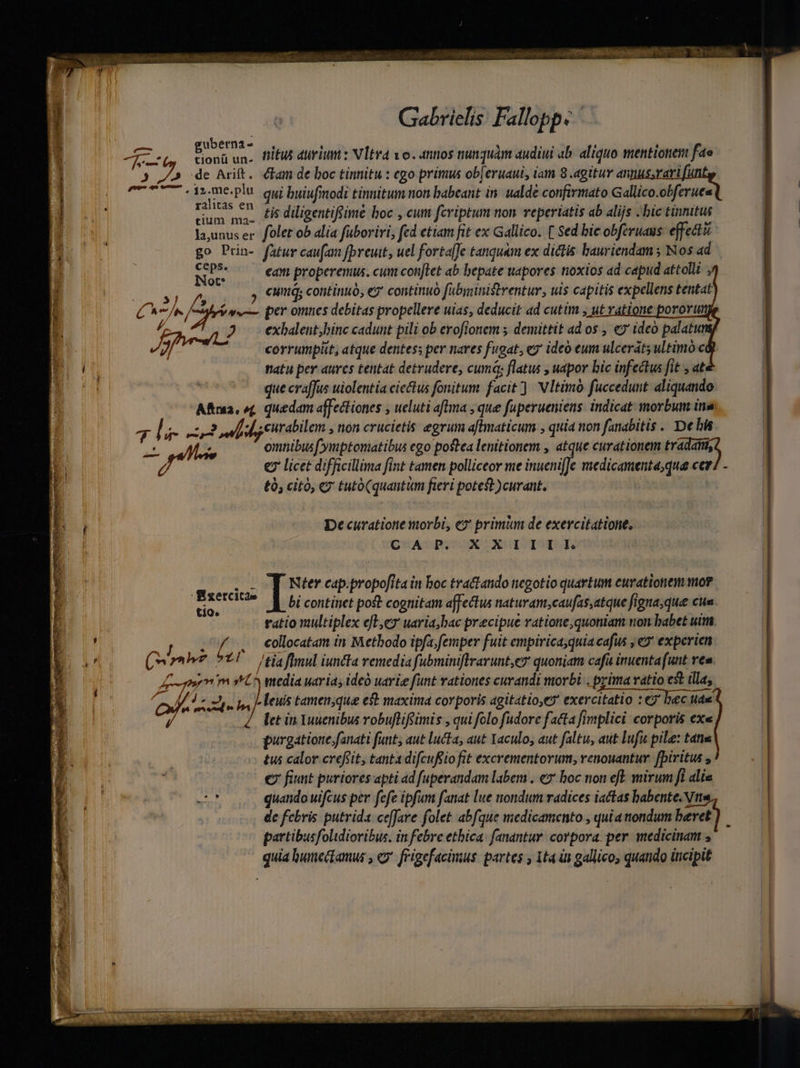 Gabrielis Fallopp.
guberna-
tionũ un-
de Arist.
12.me.plu
ralitas en
tium ma-
la,unus er
go Prin-
ceps.
Not
nitus aurium: Vltra 10. annos nunquàm audiui ab aliquo mentionem fae
ctam de hoc tinnitu: ego primus obseruaui, iam 8.agitur annus,rari sunt
qui huiusmodi tinnitum non habeant in ualdè confirmato Gallico.obserues
tis diligentissimè hoc, cum scriptum non reperiatis ab alijs. hic tinnitus
solet ob alia suboriri, sed etiam fit ex Gallico. [ Sed hic obseruans effectũ
fatur causam spreuit, uel fortasse tanquàm ex dictis hauriendam; Nos ad
eam properemus. cum constet ab hepate uapores noxios ad caput attolli,
cumq; continuò, & continuò subministrentur, uis capitis expellens tentat
per omnes debitas propellere uias, deducit ad cutim, ut ratione pororum
exhalent;hinc cadunt pili ob erosionem; demittit ad os, & ideò palatum
corrumpit, atque dentes; per nares fugat, & ideò eum ulcerat; ultimò cũ
natu per aures tentat detrudere, cumq; flatus, uapor hic infectus sit, at
que crassus uiolentia eiectus sonitum facit ] Vltimò succedunt aliquando
Astma. quædam affectiones, ueluti astma, que superueniens indicat morbum in
curabilem, non crucietis egrum astmaticum, quia non sanabitis. De his
omnibus symptomatibus ego postea lenitionem, atque curationem tradam,
& licet difficillima sint tamen polliceor me inuenisse medicamenta,qua cer
tò, citò, & tutò(quantùm fieri potest)curant.
De curatione morbi, & primùm de exercitatione.
CAP. XXIIII.
Exercita
tio.
INter cap.proposita in hoc tractando negotio quartum curationem mor
bi continet post cognitam affectus naturam,causas,atque signa,que cu
ratio multiplex est,& uaria,hac præcipuè ratione,quoniam non habet uim
collocatam in Methodo ipsa,semper fuit empirica,quia casus, & experien
tia simul iuncta remedia subministrarunt,& quoniam casu inuenta sunt re
media uaria, ideò uariæ sunt rationes curandi morbi. prima ratio est illa,
leuis tamen,que est maxima corporis agitatio,& exercitatio: & hæc ua
let in Iuuenibus robustissimis, qui solo sudore facta simplici corporis ex
purgatione,sanati sunt, aut lucta, aut Iaculo, aut saltu, aut lusu pile: tan
tus calor cressit, tanta discussio fit excrementorum, renouantur spiritus,
& fiunt puriores apti ad superandam labem. & hoc non est mirum si alie
quando uiscus per sese ipsum sanat lue nondum radices iactas habente. Vn
de febris putrida cessare solet absque medicamento, quia nondum hæret
partibus solidioribus. in febre ethica sanantur corpora per medicinam,
quia humectamus, & frigefacimus partes, Ita in gallico, quando incipit